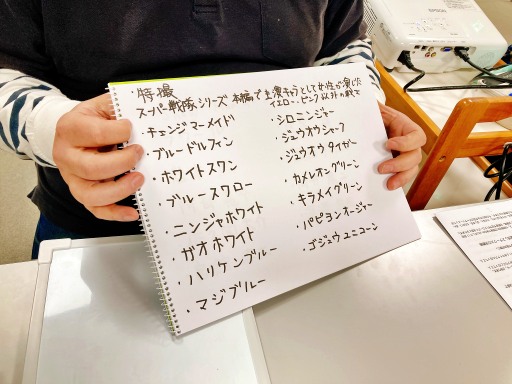 ・特撮
スーパー戦隊シリーズ 本編で主要キャラとして女性が演じた
イエロー、ピンク以外の戦士
・チェンジマーメイド
・ブルードルフィン
・ホワイトスワン
・ブルースワロー
・ニンジャホワイト
・ガオホワイト
・ハリケンブルー
・マジブルー
・シロニンジャー
・ジュウオウシャーク
・ジュウオウタイガー
・カメレオングリーン
・キラメイグリーン
・パピヨンオージャー
・ゴジュウユニコーン
EPSON